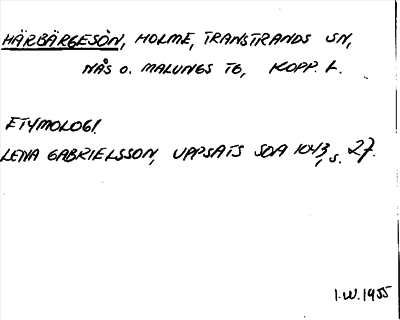 HÄRBÄRGESÖN, HOLME, TRANSTRANDS SN,
NÅS O. MALUNGS TG, KOPP. L.
ETYMOLOGI.
LENA GABRIELSSON, UPPSATS SOA 1043, S. 27.
I.W. 1955